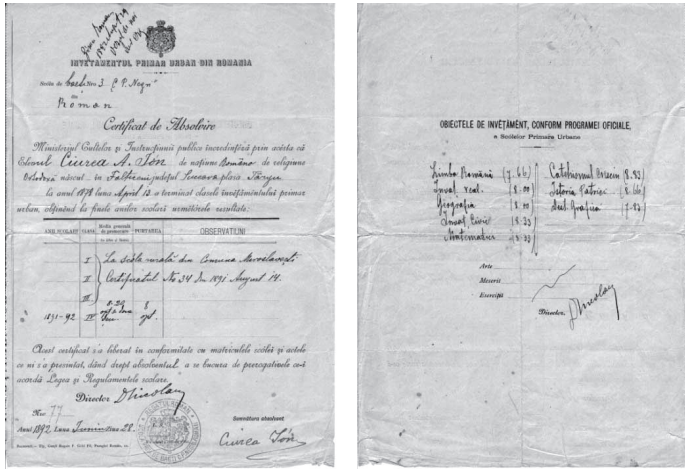 INVETAMENTUL PRIMAR URBAN DIN ROMANIA
Scóla de baeti Nro 3 "C. P. Negri"
din
Roman
Certificat de Absolvire
Ministeriul Cultelor și Instrucțiunii publice încredințéză prin acésta că
Elevul Ciurea A. Ión, de națiune Româna, de religiune
Ortodoxă născut în Fălticeni, județul Suceava, plasa
la anul 1878 luna April 12 a terminat clasele învățământului primar
urban, obținênd la finele anilor scolari următórele resultate:
ANII SCOLARI CLASA Media generală OBSERVATIUNI
I La scóla rurală din Comuna Miroslavești
II Certificatul No 34 din 1891 August 14.
III
1891-92 IV 8.29 8
opt
Acest certificat s'a liberat în conformitate cu matriculele scólei și actele
ce ni s'a presintat, dând drept absolventului a se bucura de prerogativele ce-i
acordă Legea și Regulamentele scolare.
Director
Nro 77
Anul 1892 Luna Juniu Ziua 28
Semnătura absolvent
Ciurea Ión
OBIECTELE DE INVĚȚĂMÊNT, CONFORM PROGRAMEI OFICIALE,
a Scolelor Primare Urbane
Limba Română (7.66) Catehismul 8.33
Invăț. real. (8.00) Istoria Patriei 8.66
Geografia (8.00) Grafica 7.83
Invăț. Civic (8.33)
Matematici (8.33)
Arte
Meserii
Exerciții
Director,